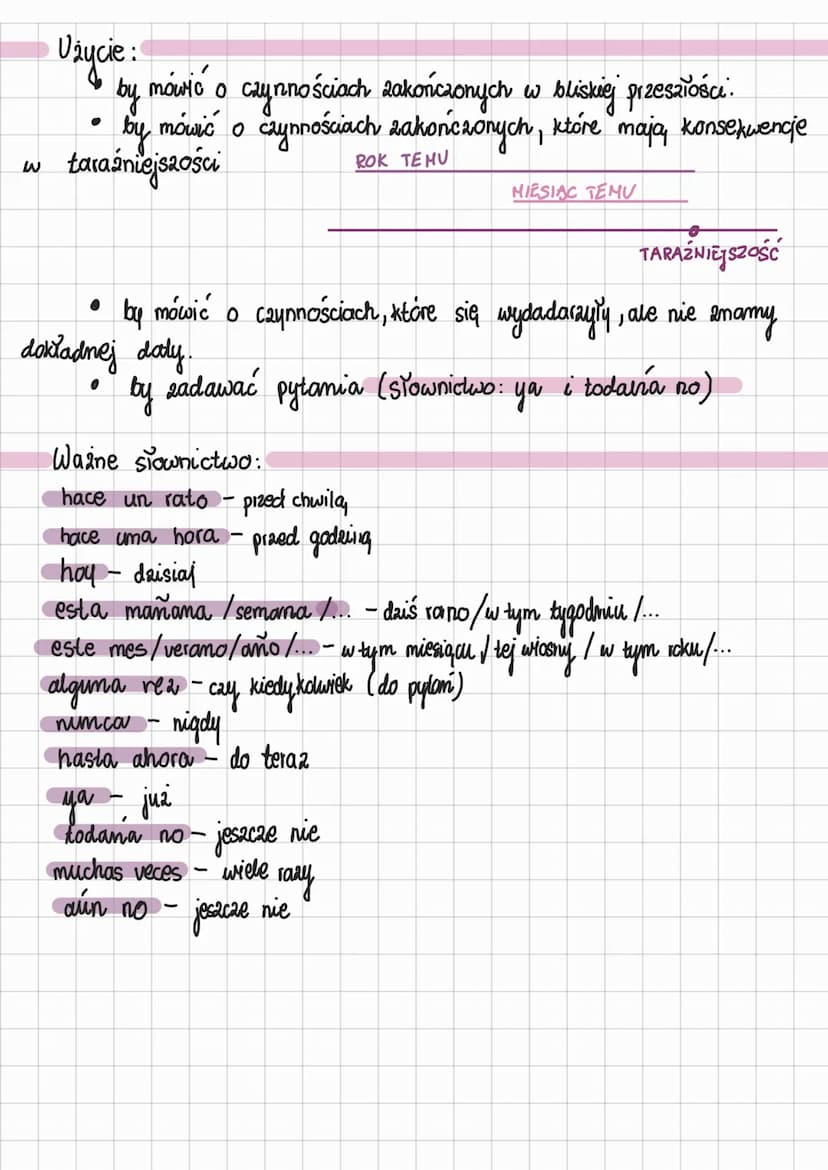 Użycie:
• by mówić o czynnościach zakończonych w bliskiej przeszłości.
• by mówić o czynnościach zakończonych, które mają konsekwencje
w taraźniejszości
ROK TEMU
MIESIĄC TEMU
TARAŹNIEJSZOŚĆ
• by mówić o czynnościach, które się wydadarzyły, ale nie znamy
dokładnej daty.
• by zadawać pytania (słownictwo: ya i todavía no)
Ważne słownictwo:
hace un rato - przed chwilą
hace una hora - przed godziną
hoy - dzisiaj
esta mañana /semana /... - dziś rano/w tym tygodniu /...
este mes/verano/año /... - w tym miesiącu / tej wiosny / w tym roku/...
alguna vez - czy kiedykolwiek (do pytań)
nunca - nigdy
hasta ahora - do teraz
ya - już
todavía no - jeszcze nie
muchas veces - wiele razy
aún no - jeszcze nie